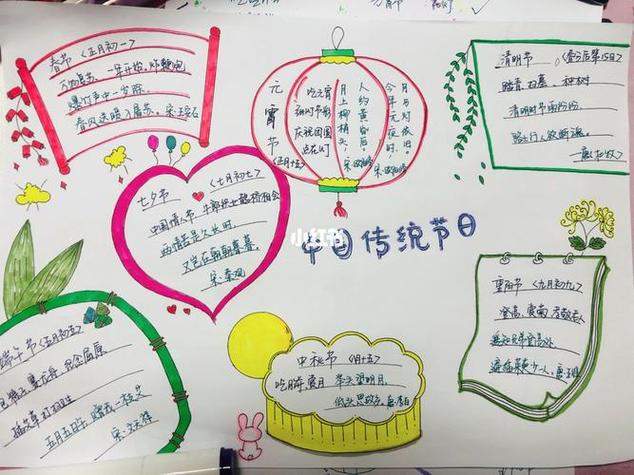 春节
万物复苏、一年开始、炸鞭炮
爆竹声中一岁除，
春风送暖入屠苏。宋·王安石
元宵节
(正月十五)
吃元宵
庆祝团圆
月上柳梢头，
人约黄昏后。
今年元夜时，
月与灯依旧。
清明节 (春分后第15日)
踏青、扫墓、种树
清明时节雨纷纷
路上行人欲断魂。
唐·杜牧
七夕节 (七月初七)
中国情人节 牛郎织女鹊桥相会
两情若是久长时，
又岂在朝朝暮暮。
宋·秦观
小红书
中国传统节日
端午节 (五月初五)
五月五日午，赠我一枝艾
宋·文天祥
中秋节 (八月十五)
吃月饼 赏月 举头望明月，
低头思故乡。唐·李白
重阳节 (九月初九)
登高、赏菊、
遥知兄弟登高处
遍插茱萸少一人。唐·王维